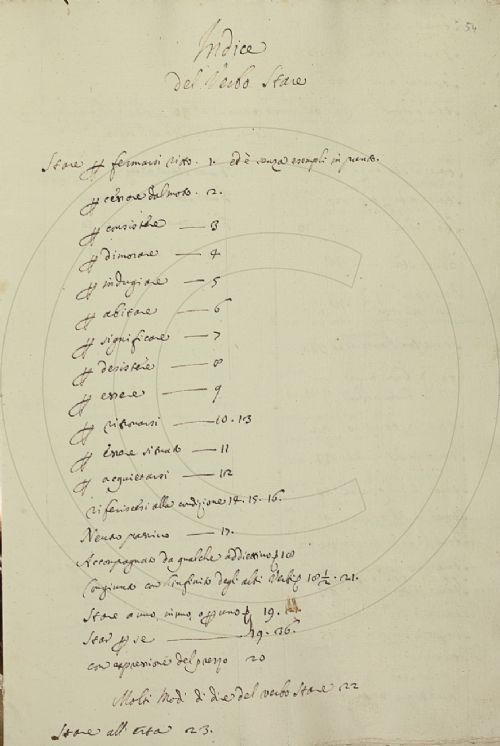 54
Indice
del Verbo Stare
Stare p fermarsi ritto. 1. ed è senza esempli in
p cessare dal moto. 2.
p consistere — 3
p dimorare — 4
p indugiare — 5
p abitare — 6
p significare — 7
p desistere — 8
p essere — 9
p ritrovarsi — 10. 13
p essere situato — 11
p acquietarsi — 12
riferiscesi alla condizione 14. 15. 16.
Neutro passivo — 17.
Accompagnato da qualche addiettivo 18
Congiunto con l'infinito degli altri Verbi 18 1/2. 21.
Stare a uno, in uno, o p uno 19.
Star p se — 19. 36.
con espressione del prezzo 20
Molti Modi di dire del verbo Stare 22
Stare all' Erta 23.